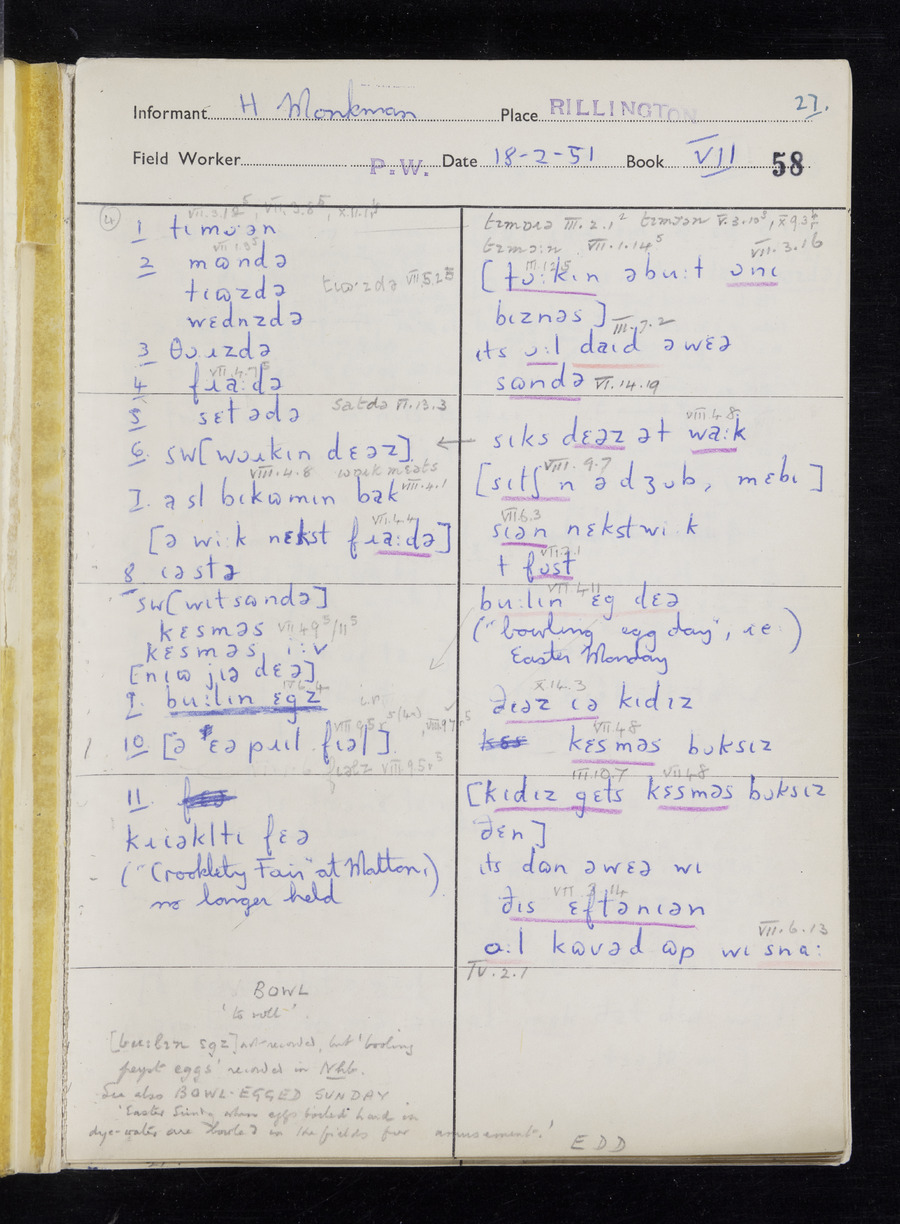 Informant H Monkman Place RILLINGTON 27.
Field Worker P.W. Date 18-2-51 Book VII 58
4
VII.3.12⁵, VII.3.8⁵, X.11.1⁴
1 tɪmɔɹən
VII.1.3⁵
2 mɷndə
tɪɷzdə VII.5.2⁵
wɛdnzdə
3 θɔɹzdə
VII.4.7⁵
4 fɹa:də
5 sɛtədə satdə VI.13.3
6. sw[wɔɹkɪn dɛəz]
VIII.4.8
7. a sl bɪkɷmɪn bak VIII.4.1
VII.4.4
[ə wi:k nɛkst fɹa:də]
8 ɪəstə
sw[wɪtsɷndə]
kɛsməs VII.4.9⁵/11⁵
kɛsməs i:v
[nɪɷ jɪə dɛə]
9. bu:lɪn ɛgz
10 [ə ɛə pɹɪl fɪəl]
fɪəlz VIII.9.5⁵
11.
kɹɪəkltɪ fɛə
("Crooklety Fair" at Malton,)
no longer held
BOWL
'to roll'.
[bu:lɪn ɛgz] not recorded, but 'booling
peyst eggs' recorded in Nhb.
See also BOWL-EGGED SUNDAY
'Easter Sunday when eggs boiled hard in
dye-water are bowled in the fields for amusement.'
EDD
III.2.1² V.3.10³, X.9.3
VII.1.14⁵ VII.3.16
[tɔ:kɪn əbu:t ɔnɪ
bɪznəs] III.7.2
ɪts ɔ:l daɪd əwɛə
sɷndə VI.14.19
VIII.4.8
sɪks dɛəz ət wa:k
VIII.9.7
[sɪtʃ n ə dʒɔb, mɛbɪ]
VII.6.3
sɪən nɛkst wi:k
VII.2.1
t fɔst
VII.4.11
bu:lɪn ɛg dɛə
("bowling egg day", ie )
Easter Monday
X.14.3
ðɪəz ɪə kɪdɪz
VII.4.8
kɛsməs bɔksɪz
III.10.7 VII.4.8
[kɪdɪz gɛts kɛsməs bɔksɪz
ðɛn]
ɪts dɷn əwɛə wɪ
VII.3.14
ðɪs ɛftənɪən
VII.6.13
ɔ:l kɷvəd ɷp wɪ sna:
IV.2.1